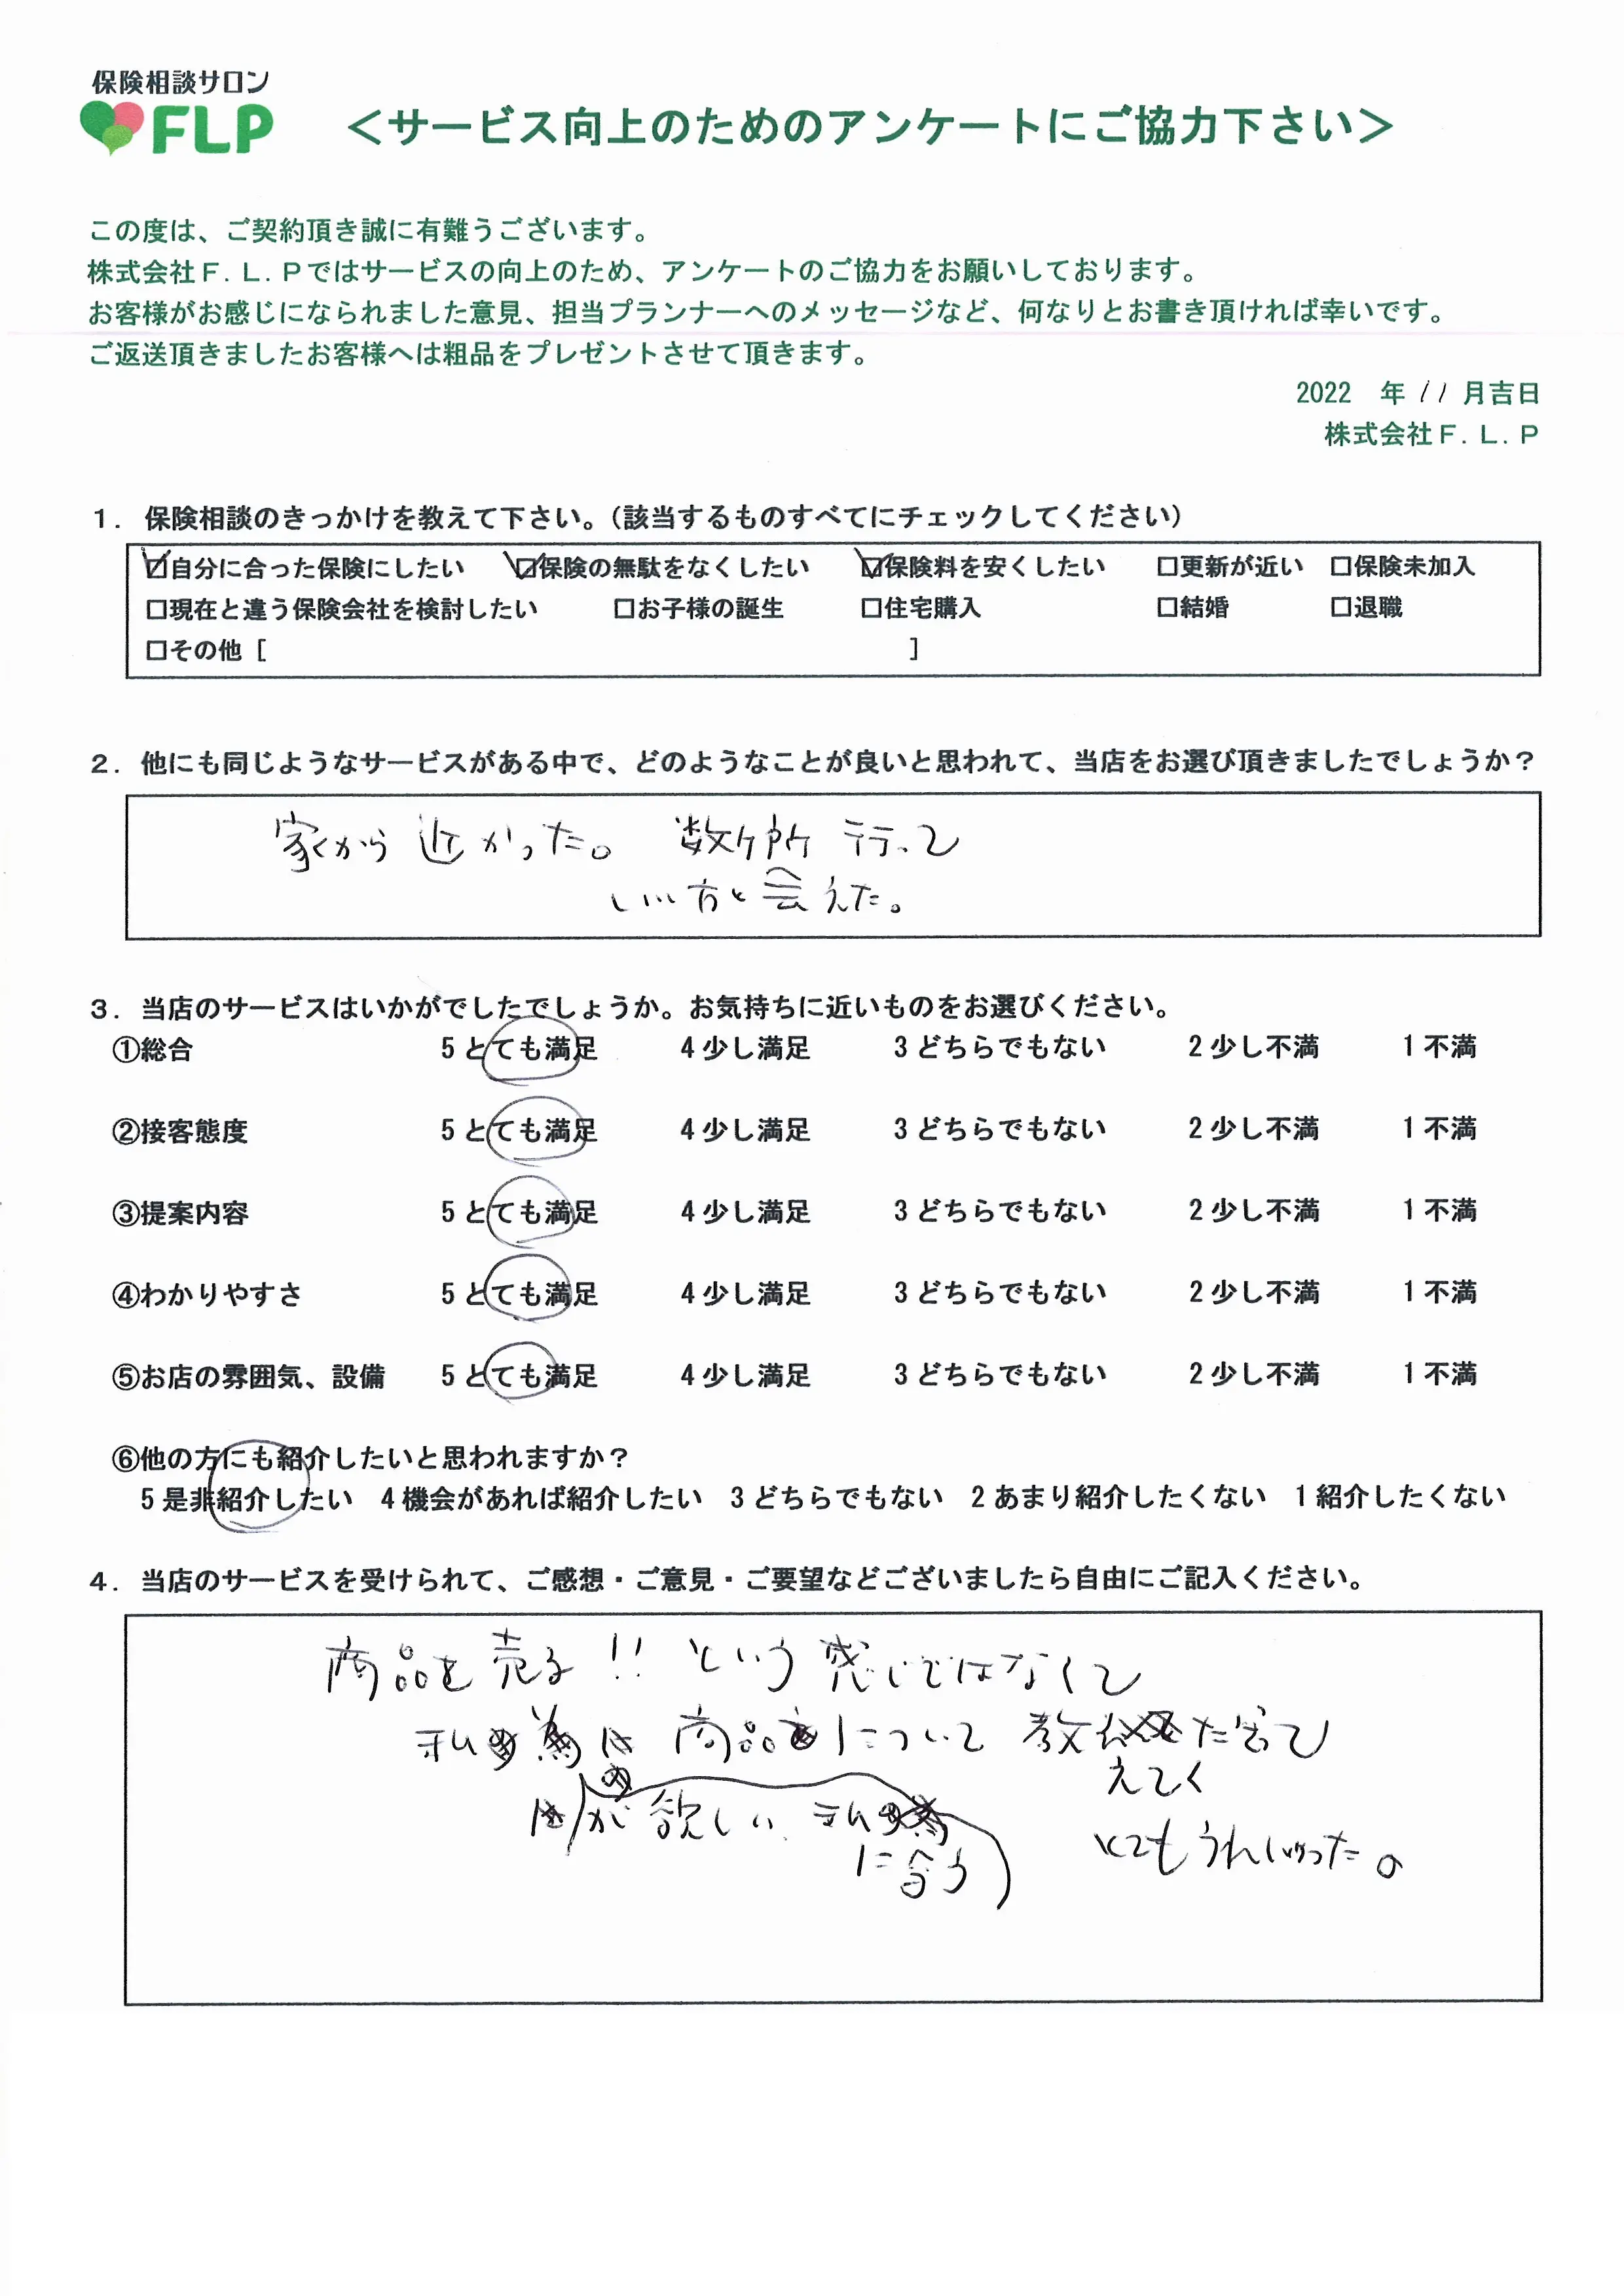 保険相談サロン
FLP
＜サービス向上のためのアンケートにご協力下さい＞
この度は、ご契約頂き誠に有難うございます。
株式会社Ｆ．Ｌ．Ｐではサービスの向上のため、アンケートのご協力をお願いしております。
お客様がお感じになられました意見、担当プランナーへのメッセージなど、何なりとお書き頂ければ幸いです。
ご返送頂きましたお客様へは粗品をプレゼントさせて頂きます。
2022 年 11 月吉日
株式会社Ｆ．Ｌ．Ｐ
１．保険相談のきっかけを教えて下さい。（該当するものすべてにチェックしてください）
☑自分に合った保険にしたい ☑保険の無駄をなくしたい ☑保険料を安くしたい □更新が近い □保険未加入
□現在と違う保険会社を検討したい □お子様の誕生 □住宅購入 □結婚 □退職
□その他［ ］
２．他にも同じようなサービスがある中で、どのようなことが良いと思われて、当店をお選び頂きましたでしょうか？
家から近かった。 数ヶ所 行って
いい方と会えた。
３．当店のサービスはいかがでしたでしょうか。お気持ちに近いものをお選びください。
①総合 5 とても満足 4 少し満足 3 どちらでもない 2 少し不満 1 不満
②接客態度 5 とても満足 4 少し満足 3 どちらでもない 2 少し不満 1 不満
③提案内容 5 とても満足 4 少し満足 3 どちらでもない 2 少し不満 1 不満
④わかりやすさ 5 とても満足 4 少し満足 3 どちらでもない 2 少し不満 1 不満
⑤お店の雰囲気、設備 5 とても満足 4 少し満足 3 どちらでもない 2 少し不満 1 不満
⑥他の方にも紹介したいと思われますか？
5 是非紹介したい 4 機会があれば紹介したい 3 どちらでもない 2 あまり紹介したくない 1 紹介したくない
４．当店のサービスを受けられて、ご感想・ご意見・ご要望などございましたら自由にご記入ください。
商品を売る！！という感じではなくて
私 商品について 教 ださって
えてく
が欲しい、私
に合う
とてもうれしかった。